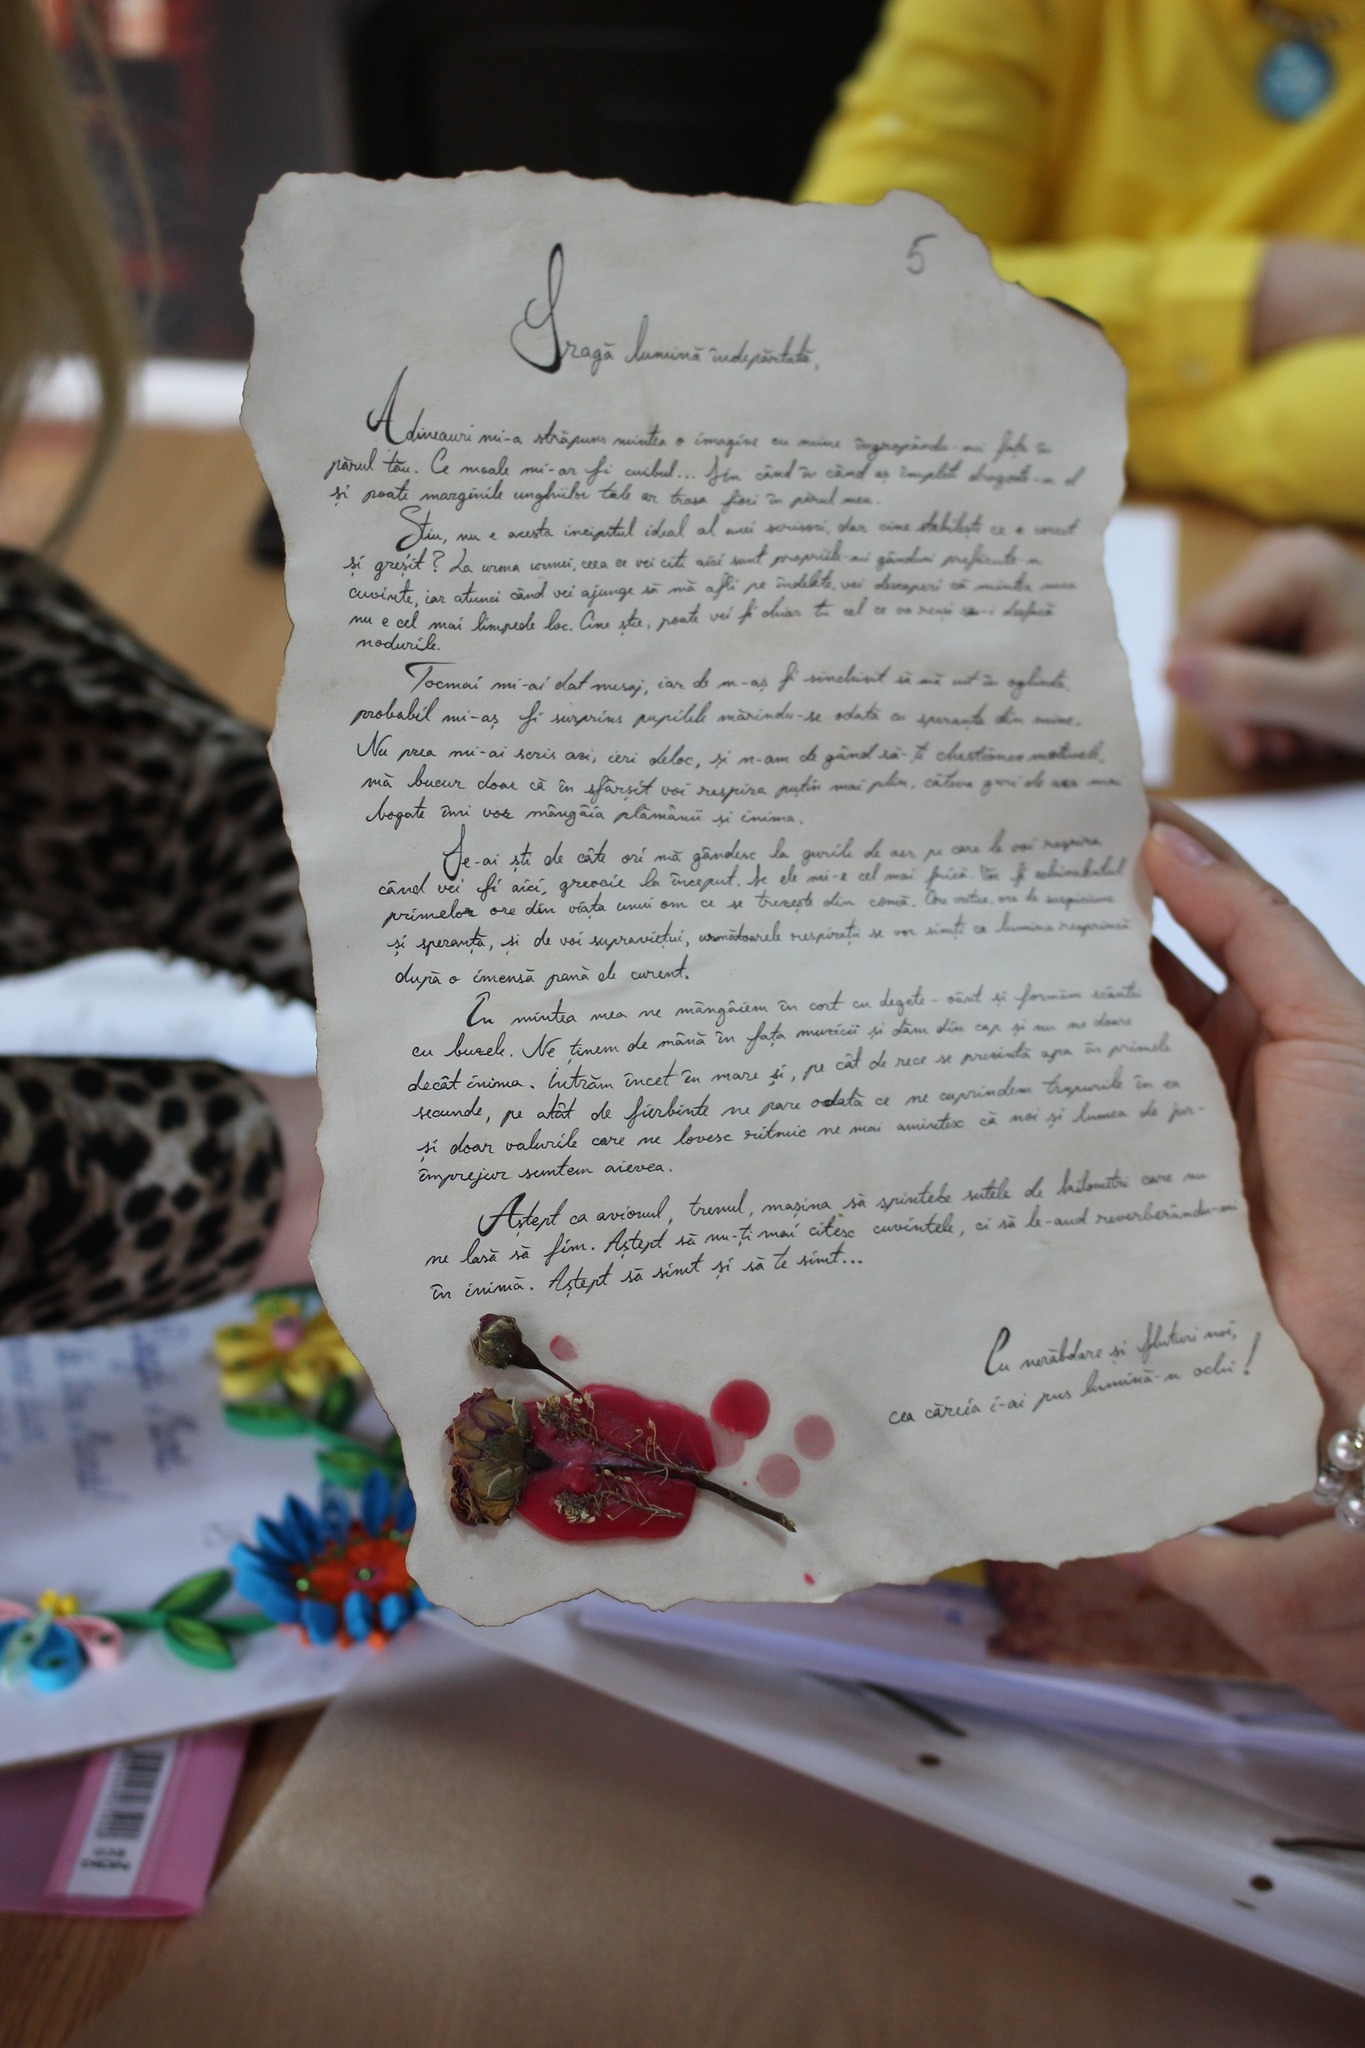 5
Dragă lumină îndepărtată,
Adineauri mi-a străpuns mintea o imagine cu mine îngropându-mi fața în
părul tău. Ce moale mi-ar fi cuibul... Din când în când aș împleti dragoste-n el
și poate marginile unghiilor tale ar trasa fiori în părul meu.
Știu, nu e acesta incipitul ideal al unei scrisori, dar cine stabilește ce e corect
și greșit? La urma urmei, ceea ce vei citi aici sunt propriile-mi gânduri prefăcute-n
cuvinte, iar atunci când vei ajunge să mă afli pe îndelete, vei descoperi că mintea mea
nu e cel mai limpede loc. Cine știe, poate vei fi chiar tu cel ce va reuși să-i desfacă
nodurile.
Tocmai mi-ai dat mesaj, iar de m-aș fi sinchisit să mă uit în oglindă,
probabil mi-aș fi surprins pupilele mărindu-se odată cu speranța din mine.
Nu prea mi-ai scris azi, ieri deloc, și n-am de gând să-ți chestionez motivele,
mă bucur doar că în sfârșit voi respira puțin mai plin, câteva guri de aer mai
bogate îmi vor mângâia plămânii și inima.
De-ai ști de câte ori mă gândesc la gurile de aer pe care le voi respira
când vei fi aici, greoaie la început. De ele mi-e cel mai frică. Vor fi echivalentul
primelor ore din viața unui om ce se trezește din comă. Ore critice, ore de suspiciune
și speranță, și de voi supraviețui, următoarele respirații se vor simți ca lumina reaprinsă
după o imensă pană de curent.
În mintea mea ne mângâiem în cort cu degete-vânt și formăm scântei
cu buzele. Ne ținem de mână în fața muzicii și dăm din cap și nu ne doare
decât inima. Intrăm încet în mare și, pe cât de rece se prezintă apa în primele
secunde, pe atât de fierbinte ne pare odată ce ne cuprindem trupurile în ea
și doar valurile care ne lovesc ritmic ne mai amintesc că noi și lumea de jur-
împrejur suntem aievea.
Aștept ca avionul, trenul, mașina să spintece sutele de kilometri care nu
ne lasă să fim. Aștept să nu-ți mai citesc cuvintele, ci să le-aud reverberându-mi
în inimă. Aștept să simt și să te simt...
Cu nerăbdare și fluturi noi,
cea căreia i-ai pus lumină-n ochi!